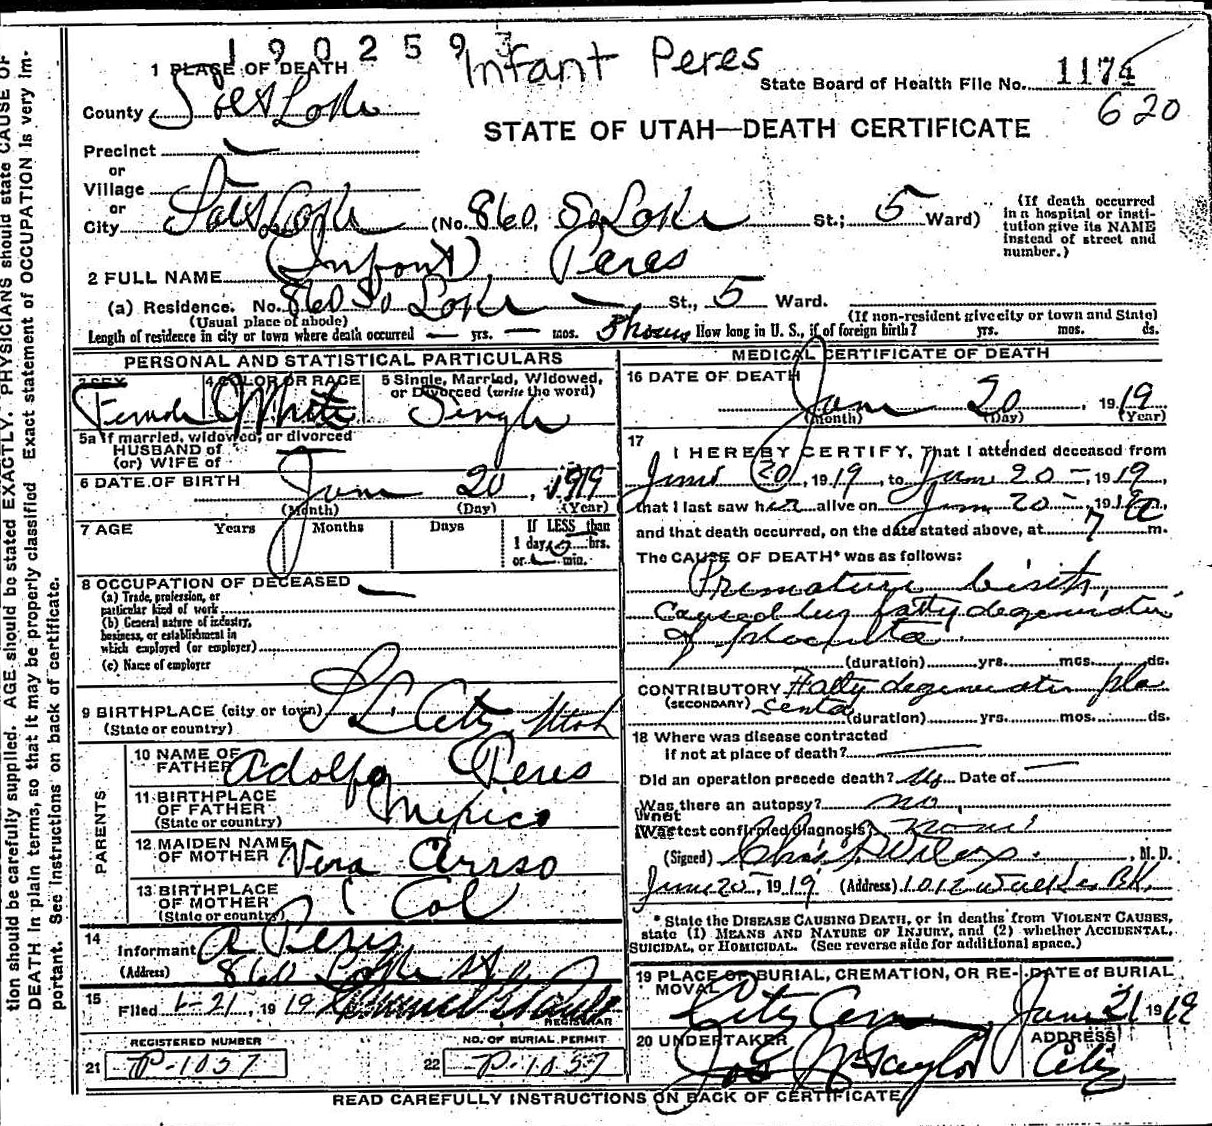 1902593
Infant Peres
1 PLACE OF DEATH
State Board of Health File No. 1174
620
County Salt Lake
STATE OF UTAH—DEATH CERTIFICATE
Precinct —
or
Village —
or
City Salt Lake (No. 860, So Lake St.; 5 Ward)
(If death occurred in a hospital or institution give its NAME instead of street and number.)
2 FULL NAME (Infant) Peres
(a) Residence. No. 860 So Lake — St., 5 Ward.
(Usual place of abode) (If non-resident give city or town and State)
Length of residence in city or town where death occurred — yrs. — mos. hours How long in U. S., if of foreign birth? yrs. mos. ds.
PERSONAL AND STATISTICAL PARTICULARS
3 SEX 4 COLOR OR RACE 5 Single, Married, Widowed, or Divorced (write the word)
Female White Single
5a If married, widowed, or divorced
HUSBAND of
(or) WIFE of —
6 DATE OF BIRTH June 20, 1919
(Month) (Day) (Year)
7 AGE Years Months Days If LESS than
1 day hrs.
or — min.
8 OCCUPATION OF DECEASED —
(a) Trade, profession, or
particular kind of work
(b) General nature of industry,
business, or establishment in
which employed (or employer)
(c) Name of employer
9 BIRTHPLACE (city or town) S L City, Utah
(State or country)
PARENTS
10 NAME OF FATHER Adolfo Peres
11 BIRTHPLACE OF FATHER Mexico
(State or country)
12 MAIDEN NAME OF MOTHER Vera
13 BIRTHPLACE OF MOTHER Col
(State or country)
14
Informant A Peres
(Address) 860 Lake
15 Filed 6-21, 1919
REGISTRAR
REGISTERED NUMBER NO. OF BURIAL PERMIT
21 P-1037 22 P-1037
MEDICAL CERTIFICATE OF DEATH
16 DATE OF DEATH
June 20, 1919
(Month) (Day) (Year)
17 I HEREBY CERTIFY, That I attended deceased from
June 20, 1919, to June 20 -, 1919,
that I last saw her alive on June 20 -, 1919,
and that death occurred, on the date stated above, at 7 a m.
The CAUSE OF DEATH* was as follows:
Premature birth,
Caused by fatty degeneration
of placenta
(duration) yrs. mos. ds.
CONTRIBUTORY Fatty degeneration pla
(SECONDARY) centa (duration) yrs. mos. ds.
18 Where was disease contracted
if not at place of death? —
Did an operation precede death? Date of —
Was there an autopsy? no
What test confirmed diagnosis? none
(Signed) Chas M. D.
June 20 -, 1919 (Address) 1012 Walker BK.
* State the DISEASE CAUSING DEATH, or in deaths from VIOLENT CAUSES, state (1) MEANS AND NATURE OF INJURY, and (2) whether ACCIDENTAL, SUICIDAL, or HOMICIDAL. (See reverse side for additional space.)
19 PLACE OF BURIAL, CREMATION, OR REMOVAL DATE of BURIAL
City Cem June 21 1919
20 UNDERTAKER ADDRESS
Jos Taylor City
READ CAREFULLY INSTRUCTIONS ON BACK OF CERTIFICATE
tion should be carefully supplied. AGE should be stated EXACTLY. PHYSICIANS should state CAUSE OF
DEATH in plain terms, so that it may be properly classified. Exact statement of OCCUPATION is very im-
portant. See instructions on back of certificate.